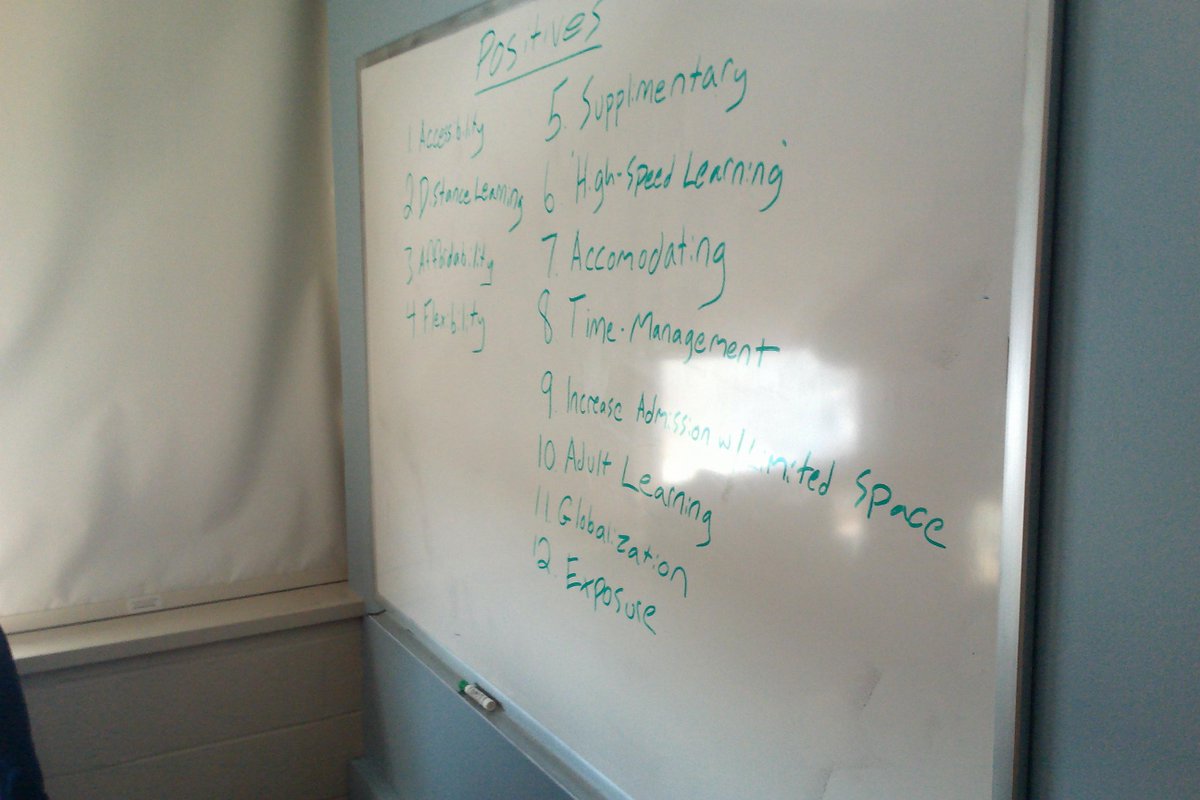 Positives
1 Accessibility
2 Distance Learning
3 Affordability
4 Flexibility
5. Supplimentary
6 "High-Speed Learning"
7. Accomodating
8 Time-Management
9. Increase Admission w/ Limited Space
10 Adult Learning
11. Globalization
12. Exposure